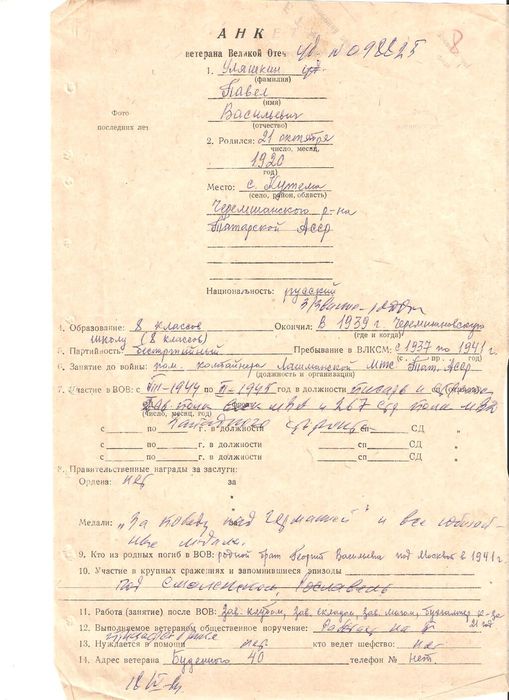 АНК
ветерана Великой Отеч уд. № 098825
8
1. Уляшкин
(фамилия)
Павел
(имя)
Васильевич
(отчество)
Фото
последних лет
2. Родился: 21 октября
число, месяц,
1920
год)
Место: с. Кутема
(село, район, область)
Черемшанского р-на
Татарской Асср
Национальность: русский
4. Образование: 8 классов Окончил: В 1939 г. Черемшанскую
школу (8 классов) (где и когда)
5. Партийность: беспартийный Пребывание в ВЛКСМ: с 1937 по 1941 г.
6. Занятие до войны: пом. Лашманской Мтс Тат. Асср
(должность и организация)
7. Участие в ВОВ: с VIII-1944 по 1945 год в должности писарь и
(число, месяц, год) и 267
с по г. в должности сп СД
с по г. в должности сп СД
8. Правительственные награды за заслуги:
Ордена: нет за
Медали: „За победу над Германией" и все юбилей-
ные медали.
9. Кто из родных погиб в ВОВ: родной брат Василевич под Москвой в 1941 г
10. Участие в крупных сражениях и запомнившиеся эпизоды
под Смоленском, Рославель
11. Работа (занятие) после ВОВ: зав. клубом, зав. складом, зав. маг., бухгалтер
12. Выполняемое ветераном общественное поручение:
13. Нуждается в помощи нет кто ведет шефство: нет
14. Адрес ветерана Буденного 40 телефон № нет.